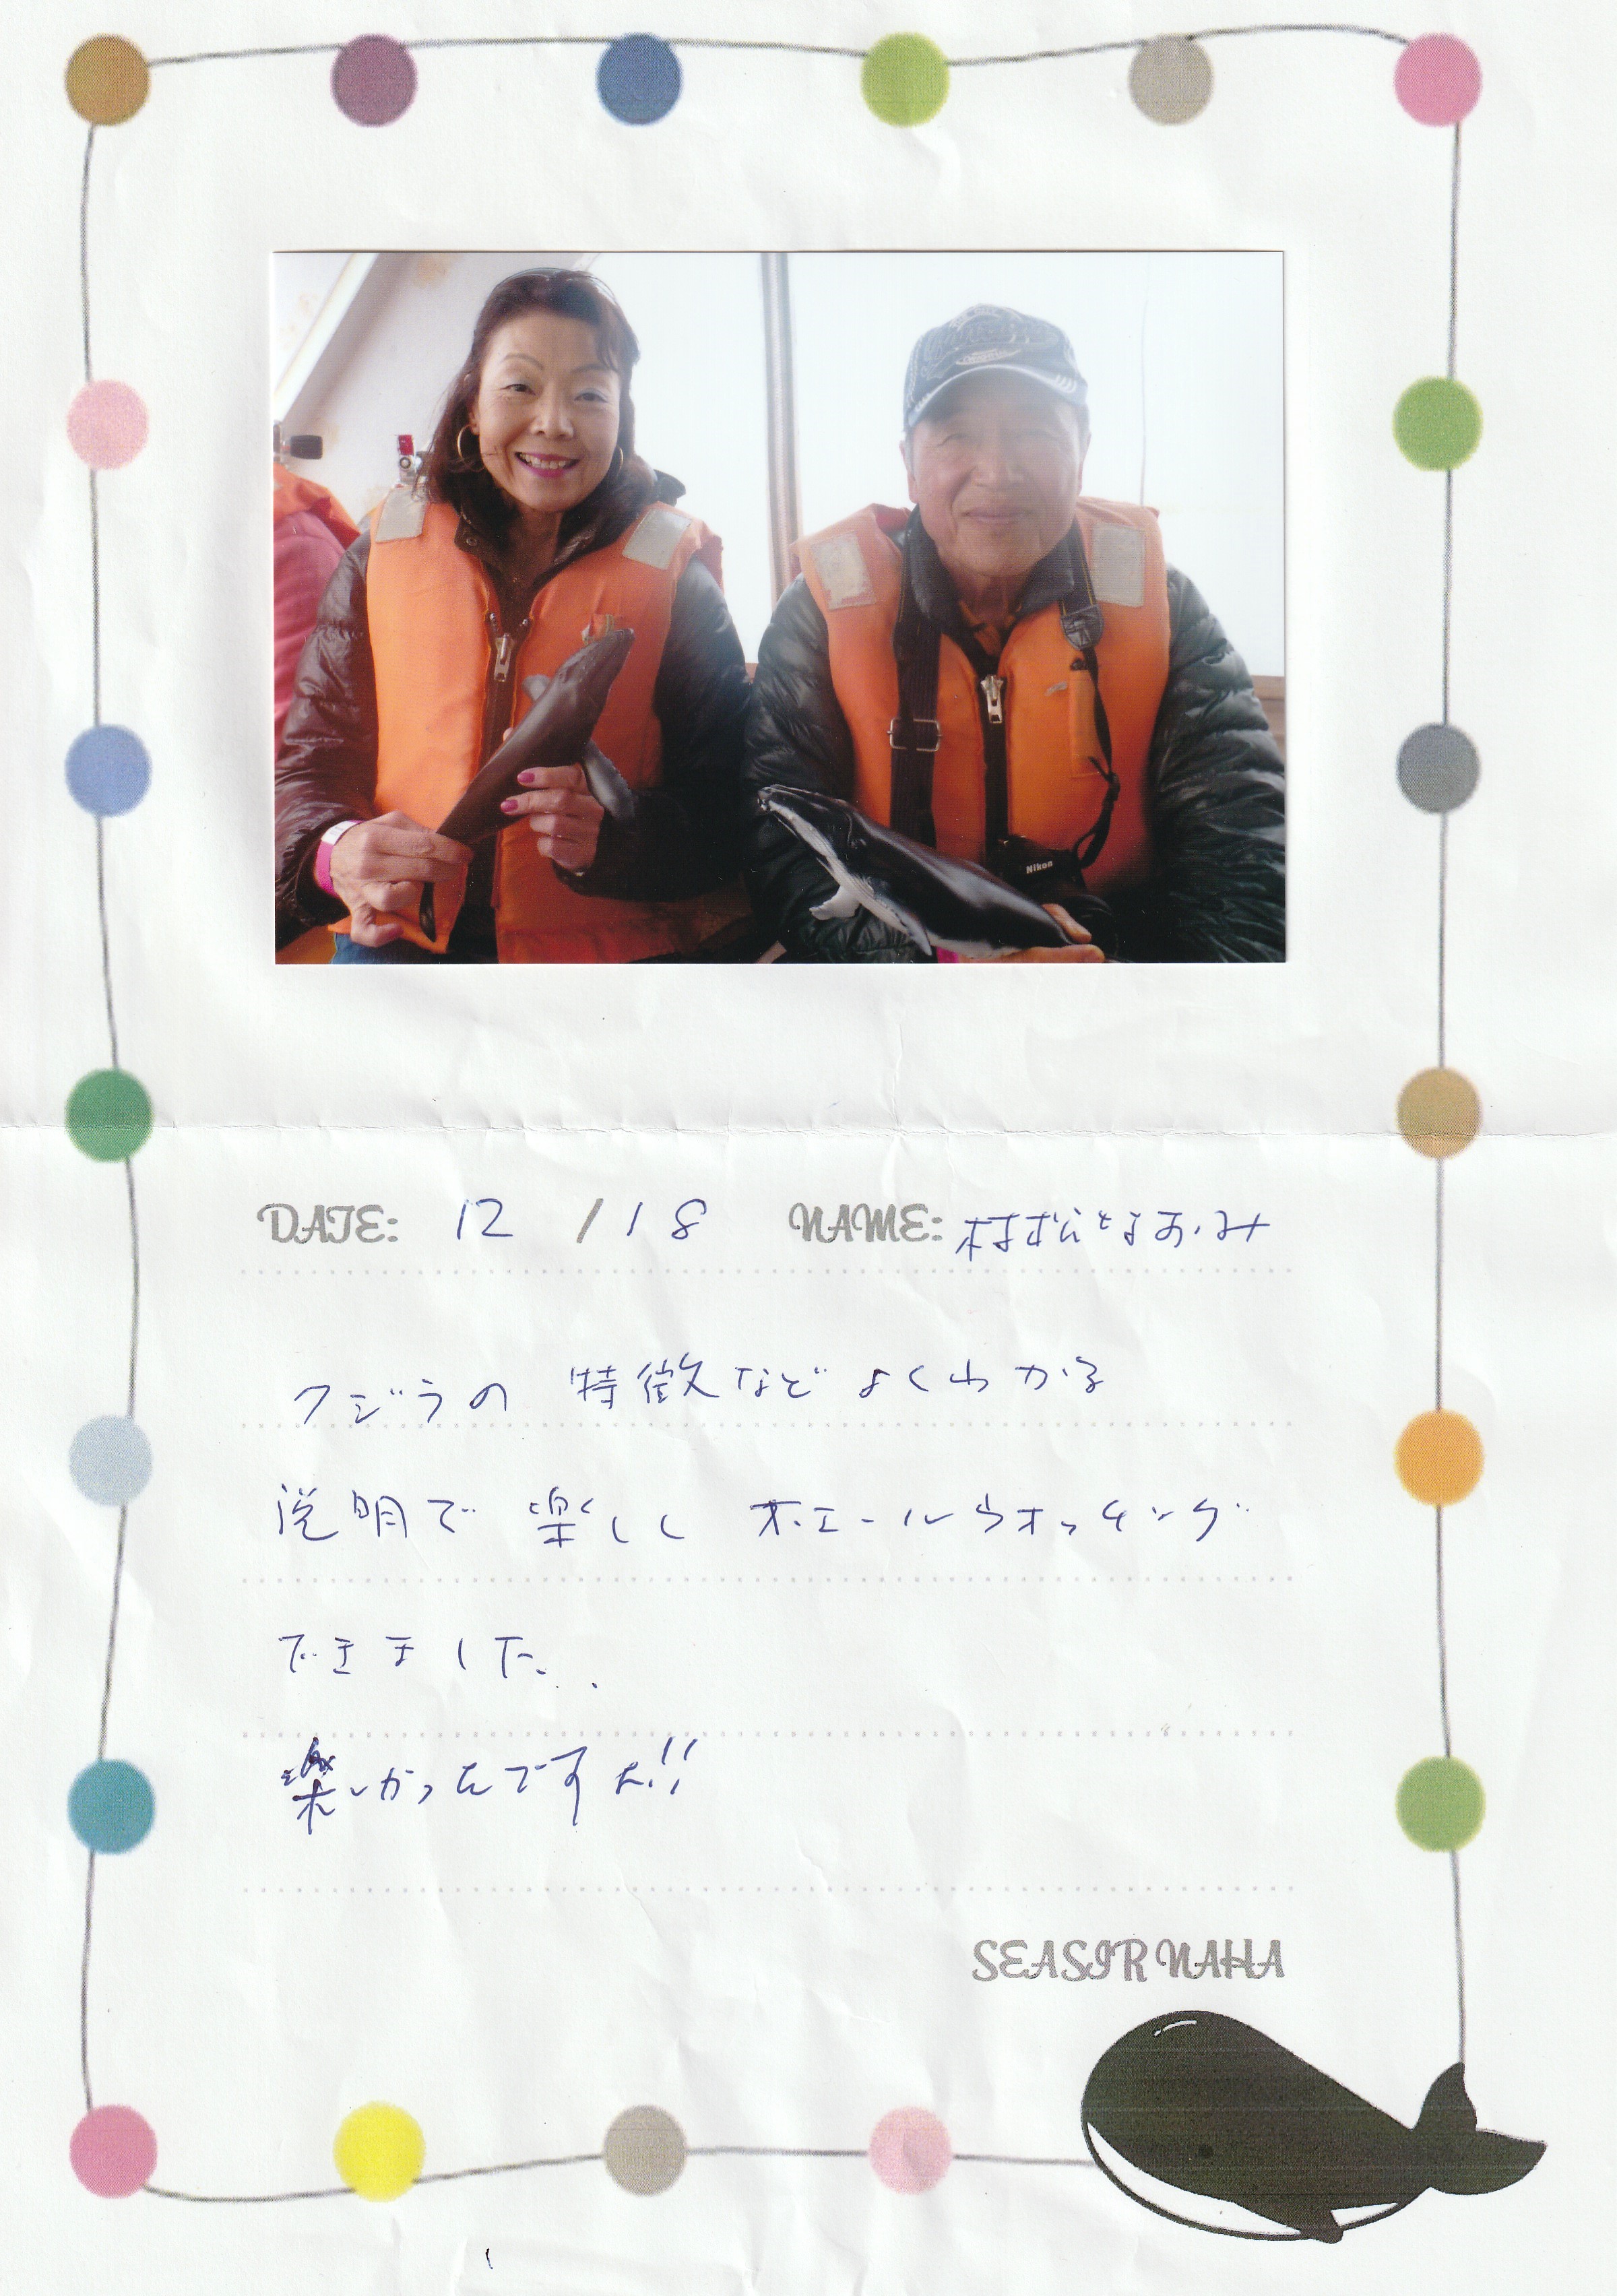 Nikon
DATE: 12 / 18 NAME: 村松なおみ
クジラの 特徴など よくわかる
説明で 楽しく ホエールウオッチング
できました。
楽しかったです
SEASIR NAHA